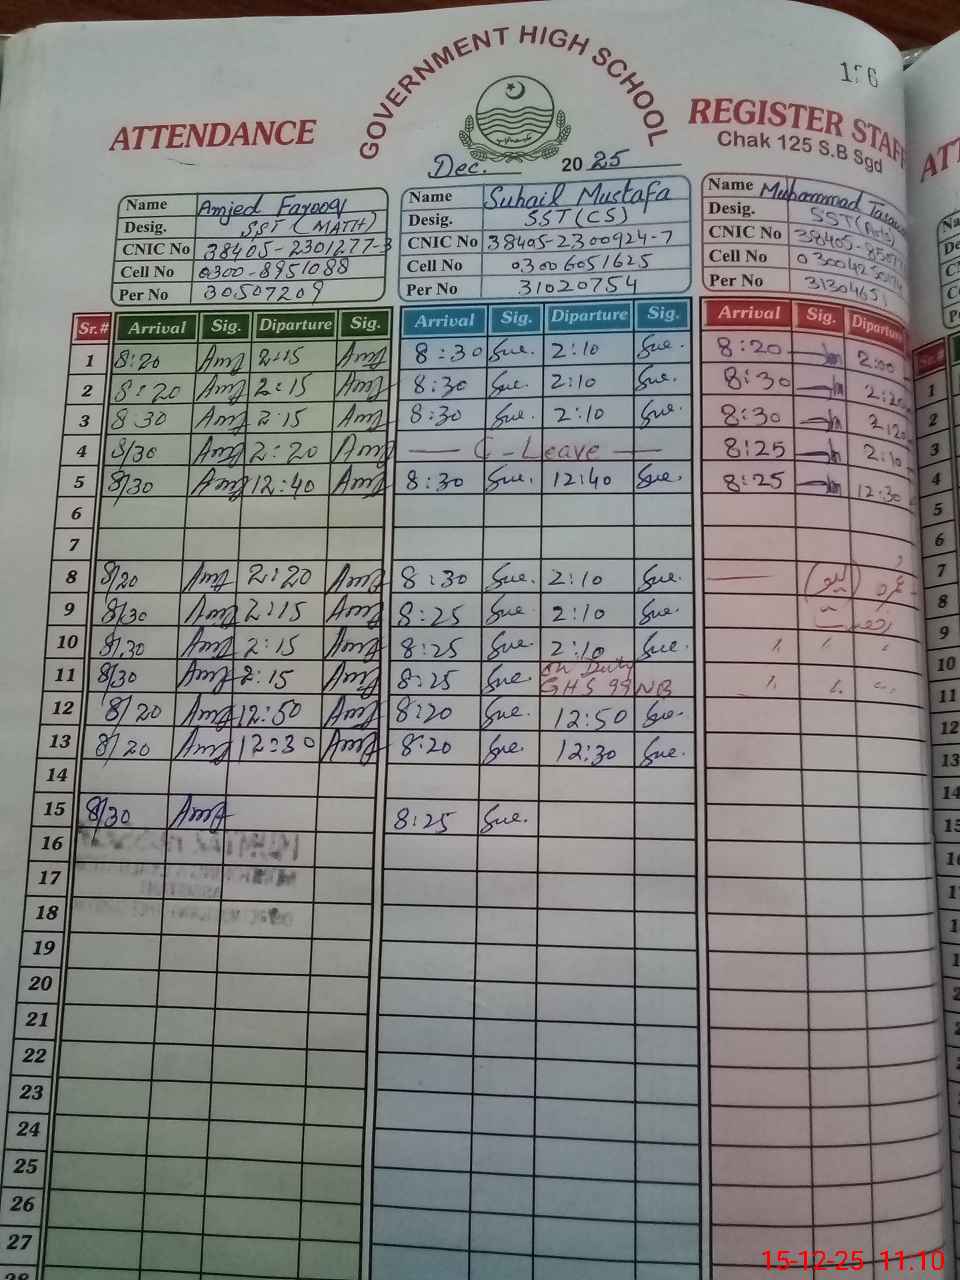 176
GOVERNMENT HIGH SCHOOL
ATTENDANCE
REGISTER STAFF
Chak 125 S.B Sgd
Dec. 2025
Name Amjed Farooq
Desig. SST (MATH)
CNIC No 38405-2301277-3
Cell No 0300-8951088
Per No 30507209
Name Suhail Mustafa
Desig. SST (CS)
CNIC No 38405-2300924-7
Cell No 03006051625
Per No 31020754
Name Muhammad
Desig. SST (Arts)
CNIC No 38405-
Cell No
Per No 31304651
Sr.# Arrival Sig. Diparture Sig. Arrival Sig. Diparture Sig. Arrival Sig. Diparture
1 8:20 2:15 8:30 Sue. 2:10 Sue. 8:20 2:00
2 8:20 2:15 8:30 Sue. 2:10 Sue. 8:30
3 8:30 2:15 8:30 Sue. 2:10 Sue. 8:30
4 8/30 2:20 C-Leave 8:25 2:10
5 8/30 12:40 8:30 Sue. 12:40 Sue. 8:25 12:30
6
7
8 8/20 2:20 8:30 Sue. 2:10 Sue.
9 8/30 2:15 8:25 Sue. 2:10 Sue.
10 8/30 2:15 8:25 Sue. 2:10 Sue.
11 8/30 2:15 8:25 Sue. On Duty GHS 99 NB
12 8/20 12:50 8:20 Sue. 12:50 Sue.
13 8/20 12:30 8:20 Sue. 12:30 Sue.
14
15 8/30 8:25 Sue.
16
17
18
19
20
21
22
23
24
25
26
27
28
15-12-25 11.10